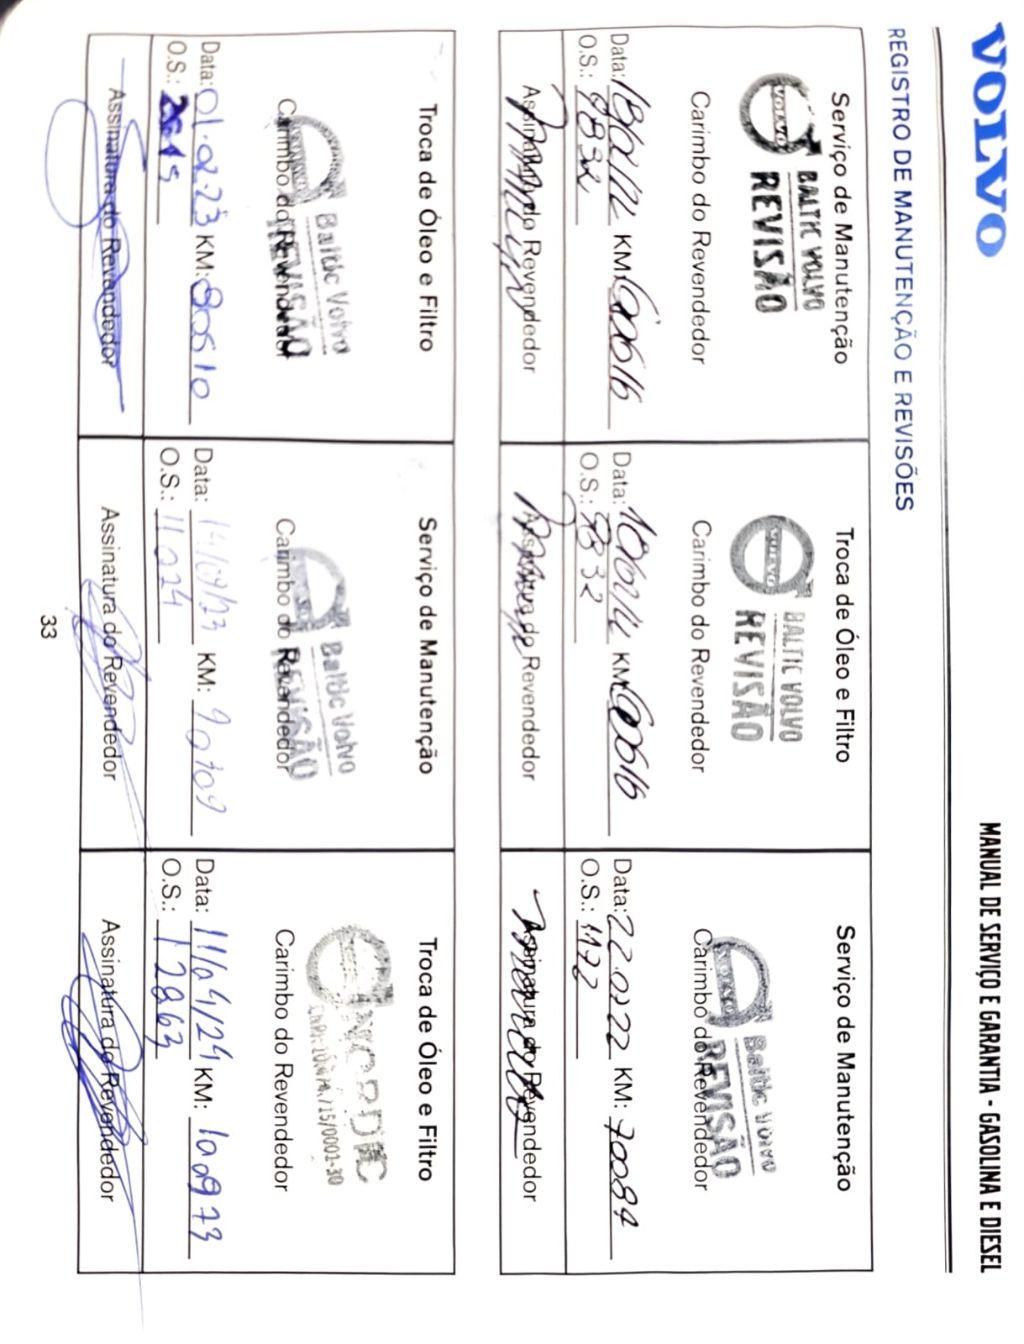 VOLVO
MANUAL DE SERVIÇO E GARANTIA - GASOLINA E DIESEL
REGISTRO DE MANUTENÇÃO E REVISÕES
Serviço de Manutenção
VOLVO BALTIC VOLVO
REVISÃO
Carimbo do Revendedor
Data: KM: 60616
O.S.: 9832
Assinatura do Revendedor
Troca de Óleo e Filtro
VOLVO BALTIC VOLVO
REVISÃO
Carimbo do Revendedor
Data: KM: 60616
O.S.: 9832
Assinatura do Revendedor
Serviço de Manutenção
VOLVO Baltic Volvo
REVISÃO
Carimbo do Revendedor
Data: 22.07.22 KM: 70084
O.S.: 1172
Assinatura do Revendedor
Troca de Óleo e Filtro
Baltic Volvo
REVISÃO
Carimbo do Revendedor
Data: KM: 80510
O.S.:
Assinatura do Revendedor
Serviço de Manutenção
Baltic Volvo
REVISÃO
Carimbo do Revendedor
Data: 14/09/23 KM: 90709
O.S.: 11024
Assinatura do Revendedor
Troca de Óleo e Filtro
Carimbo do Revendedor
Data: 11/04/24 KM: 100973
O.S.: 12863
Assinatura do Revendedor
33